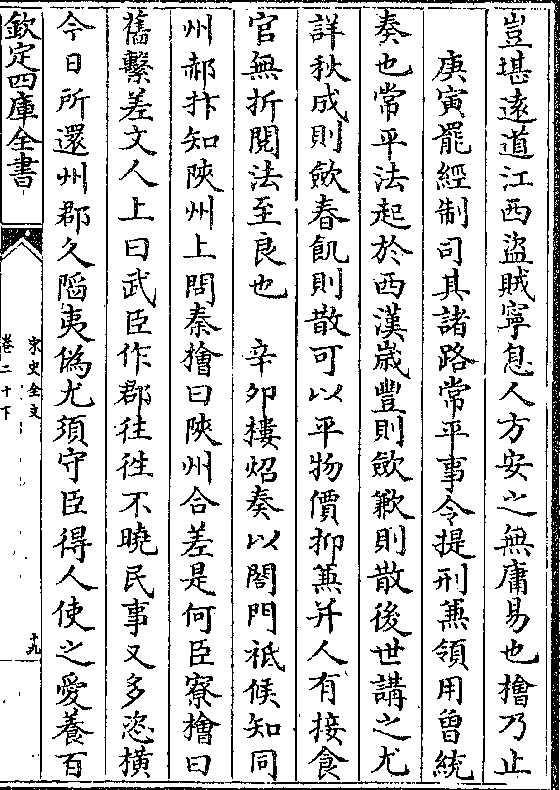 豈堪逺道江西盗賊寧息人方安之無庸易也檜乃止
庚寅罷經制司其諸路常平事令提刑兼領用曾統
奏也常平法起於西漢歳豐則歛歉則散後世講之尤
詳秋成則歛春飢則散可以平物價抑兼并人有接食
官無折閱法至良也　辛卯樓炤奏以閤門祗候知同
州郝抃知陜州上問秦檜曰陜州合差是何臣寮檜曰
舊繫差文人上曰武臣作郡往徃不曉民事又多恣横
今日所還州郡久陷夷僞尤須守臣得人使之愛養百
欽定四庫全書
宋史全文
卷二十下
十九